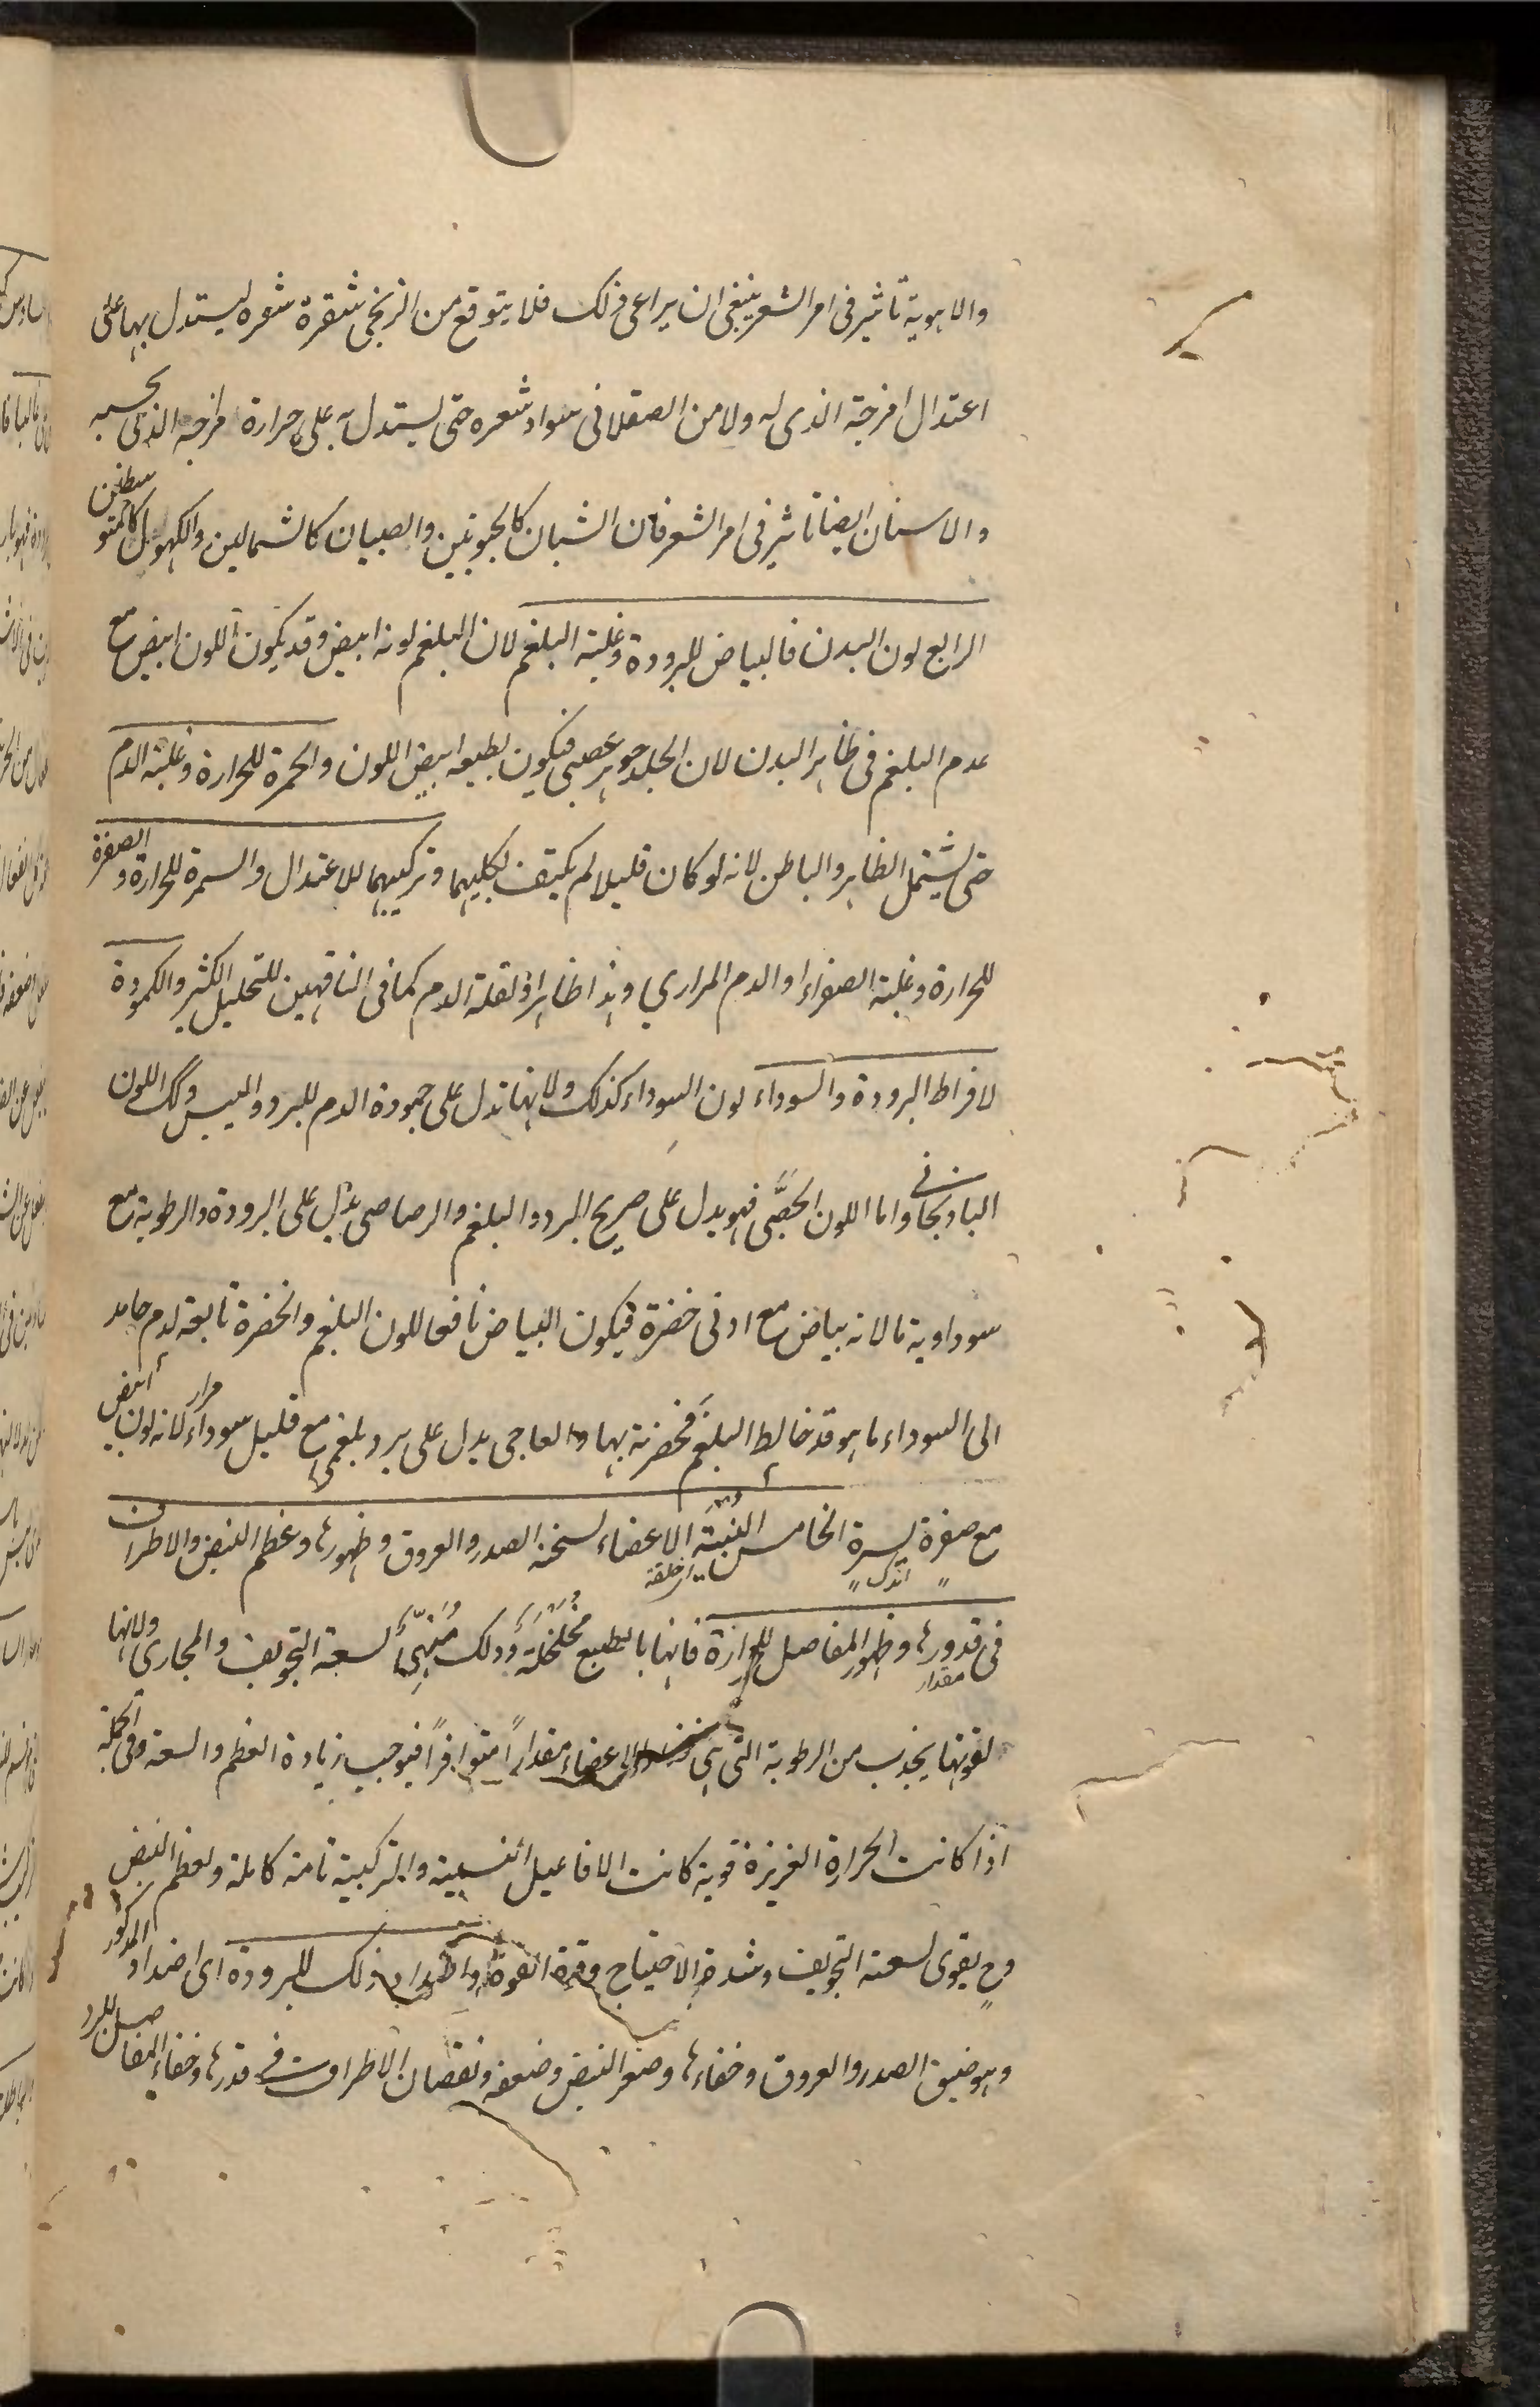 والاهوية تاثير فى امر الشعر ينبغى ان يراعى ذلك فلا يتوقع من الزنجى شقرة شعره ليستدل بها على
اعتدال مزجة الذى له ولا من الصقلانى سواد شعره حتى يستدل به على حرارة مزاجه الذى بحسبه
والاسنان ايضا تاثير فى امر الشعر فان الشبان كالجنوبيين والصبيان كالشماليين والكهول كالمتوسطين
الرابع لون البدن فالبياض للبرودة وغلبة البلغم لان البلغم لونه ابيض وقد يكون اللون ابيض مع
عدم البلغم فى ظاهر البدن لان الجلد جوهر عصبى فيكون بطبعه ابيض اللون والحمرة للحرارة وغلبة الدم
حتى يشتمل الظاهر والباطن لانه لو كان قليلا لم يكتف لكليهما وتركيبهما للاعتدال والسمرة للحرارة والصفرة
للحرارة وغلبة الصفراء او الدم المراري وهذا ظاهر او لقلة الدم كما فى الناقهين للتحليل الكثير والكمودة
لافراط البرودة والسوداء لون السوداء كذلك ولانها تدل على جمودة الدم للبرد واليبس وكك اللون
الباذنجانى واما اللون الجصى فهو يدل على صريح البرد والبلغم والرصاصى يدل على البرودة والرطوبة مع
سوداوية ما لانه بياض مع ادنى خضرة فيكون البياض تابعا للون البلغم والخضرة تابعة لدم جامد
الى السوداء ما هو قد خالط البلغم فخضرته بها والعاجى يدل على برد بلغمى مع قليل سوداء مرار لانه لون ابيض
مع صفرة يسيرة الخامس هيئة الاعضاء لسخنة الصدر والعروق وظهورها وعظم النبض والاطراف
اندك ای خلقة
فى قدورها وظهور المفاصل للحرارة فانها بالطبع مخلخلة وذلك مهيئ لسعة التجويف والمجارى ولانها
مقدار
لقوتها يجذب من الرطوبة التى هى الاعضاء مقدارا متوافرا فيوجب زيادة العظم والسعة وفى الجملة
اذا كانت الحرارة الغريزة قوية كانت الافاعيل النفسية والتركيبية تامة كاملة ولعظم النبض
وح يقوى لسعة التجويف وشدة الاحتياج وقوة القوة واضداد ذلك للبرودة اى اضداد المذكور
وهو ضيق الصدر والعروق وخفاءها وصغر النبض وضعفه ونقصان الاطراف فى قدرها وخفاء المفاصل للبرد